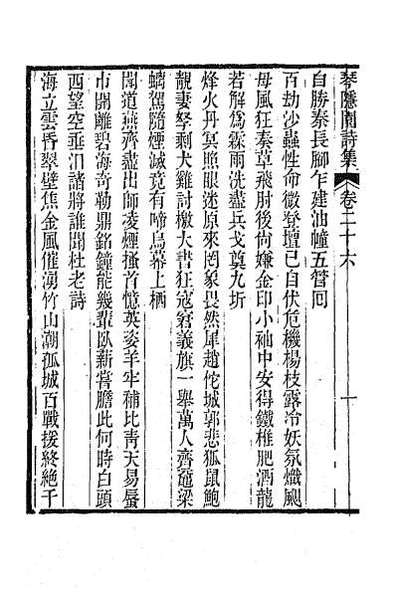 琴隱園詩集 卷二十六 一
自勝秦長腳乍建油幢五管囘
百劫沙蟲性命微登壇已自伏危機楊枝露冷妖氛熾颶
母風狂奏草飛肘後尙嫌金印小袖中安得鐵椎肥酒龍
若解爲霖雨洗盡兵戈奠九圻
烽火丹冥照眼迷原來罔象畏然犀趙佗城郭悲狐鼠鮑
靚妻孥剩犬雞討檄大書狂寇窘義旗一舉萬人齊䃅梁
螭駕隨煙滅竟有啼烏幕上栖
聞道燕齊盡出師凌煙搔首憶英姿羊牢補比靑天易蜃
市開離碧海奇勒鼎銘鐘能幾輩臥薪嘗膽此何時白頭
西望空垂淚諸將誰聞杜老詩
海立雲昏翠壁焦金風催湧竹山潮孤城百戰援終絕千